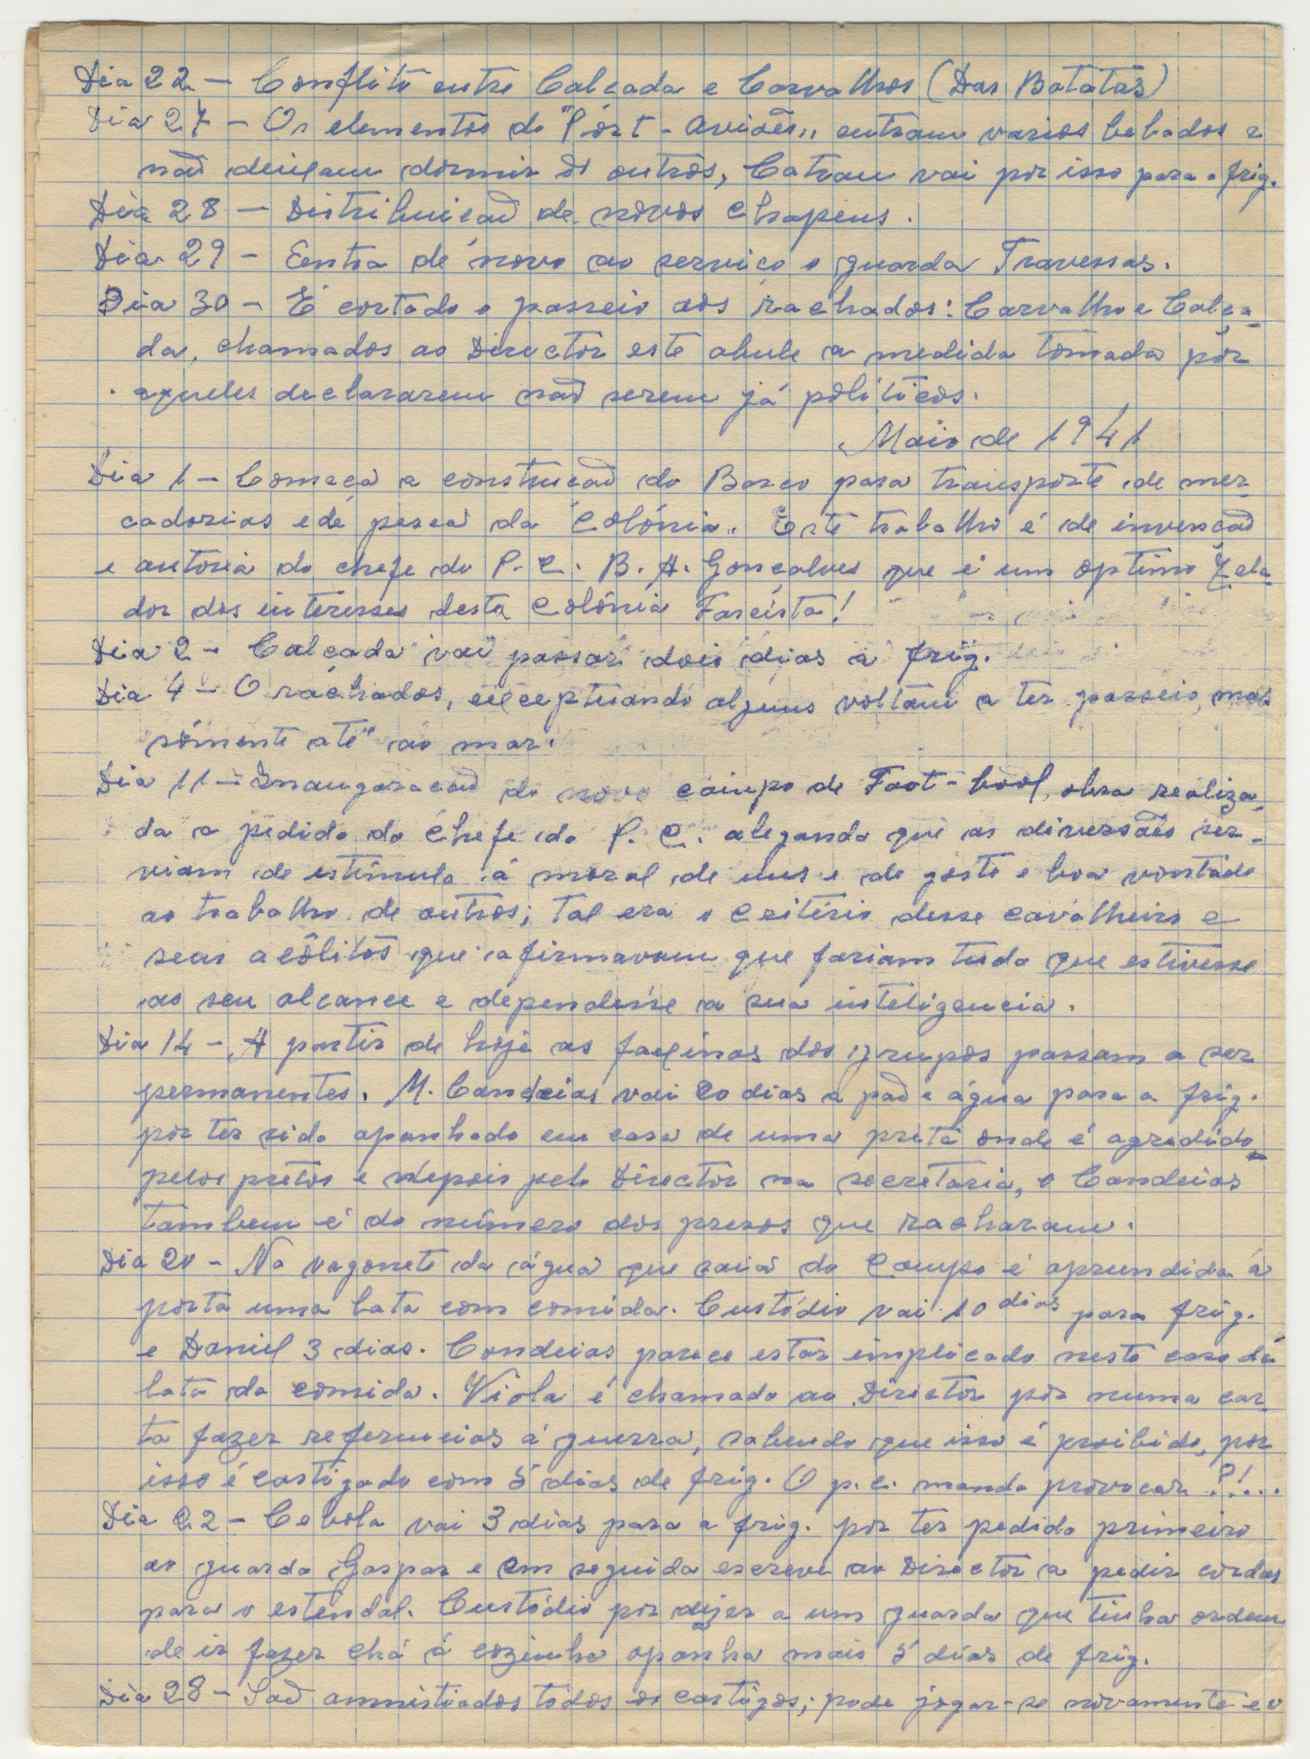 Dia 22 - Conflito entre Calçada e Carvalhos (Das Batatas)
Dia 27 - Os elementos do "Port-Aviões" entram varios bebados e
não deixam dormir os outros, Catrau vai por isso para a frig.
Dia 28 - Distribuicão de novos chapeus.
Dia 29 - Eentra de novo ao serviço o guarda Travessas.
Dia 30 - É cortado o passeio aos rachados: Carvalho e Calça-
da, chamados ao Director este abule a medida tomada por
aqueles declararem não serem já politicos.
Maio de 1941
Dia 1 - Começa a construcão do Barco para transporte de mer-
cadorias e de pesca da Colónia. Este trabalho é de invencão
e autoria do chefe do P.C. B. A. Gonçalves que é um optimo Zela-
dor dos interesses desta Colónia Fascista!
Dia 2 - Calçada vai passar dois dias á frig.
Dia 4 - O rachados, exceptuando alguns voltam a ter passeio, mas
sómente até ao mar.
Dia 11 - Inauguracão do novo campo de Foot-bool, obra realiza-
da a pedido do Chefe do P.C. alegando que as diversões ser-
viam de estímulo á moral de uns e de gosto e boa vontade
ao trabalho de outros; tal era o critério desse cavalheiro e
seus acólitos que afirmavam que fariam tudo que estivesse
ao seu alcance e dependesse a sua inteligencia.
Dia 14 - A partir de hoje as faxinas dos grupos passam a ser
permanentes. M. Candeias vai 20 dias a pão e água para a frig.
por ter sido apanhado em casa de uma preta onde é agredido
pelos pretos e depois pelo Director na secretaria, o Candeias
tambem é do número dos presos que racharam.
Dia 20 - Na vagonete da água que saia do Campo é aprendida á
porta uma lata com comida. Custódio vai 10 dias para frig.
e Daniel 3 dias. Candeias parece estar implicado neste caso da
lata da comida. Viola é chamado ao Director por numa car-
ta fazer referencias á guerra, sabendo que isso é proibido, por
isso é castigado com 5 dias de frig. O p.c. manda provocar ?!...
Dia 22 - Cebola vai 3 dias para a frig. por ter pedido primeiro
ao guarda Gaspar e em seguida escreve ao Director a pedir cordas
para o estendal. Custódio por dizer a um guarda que tinha ordem
de ir fazer chá á cozinha apanha mais 5 dias de frig.
Dia 28 - São amnistiados todos os castigos; pode jogar-se novamente e o